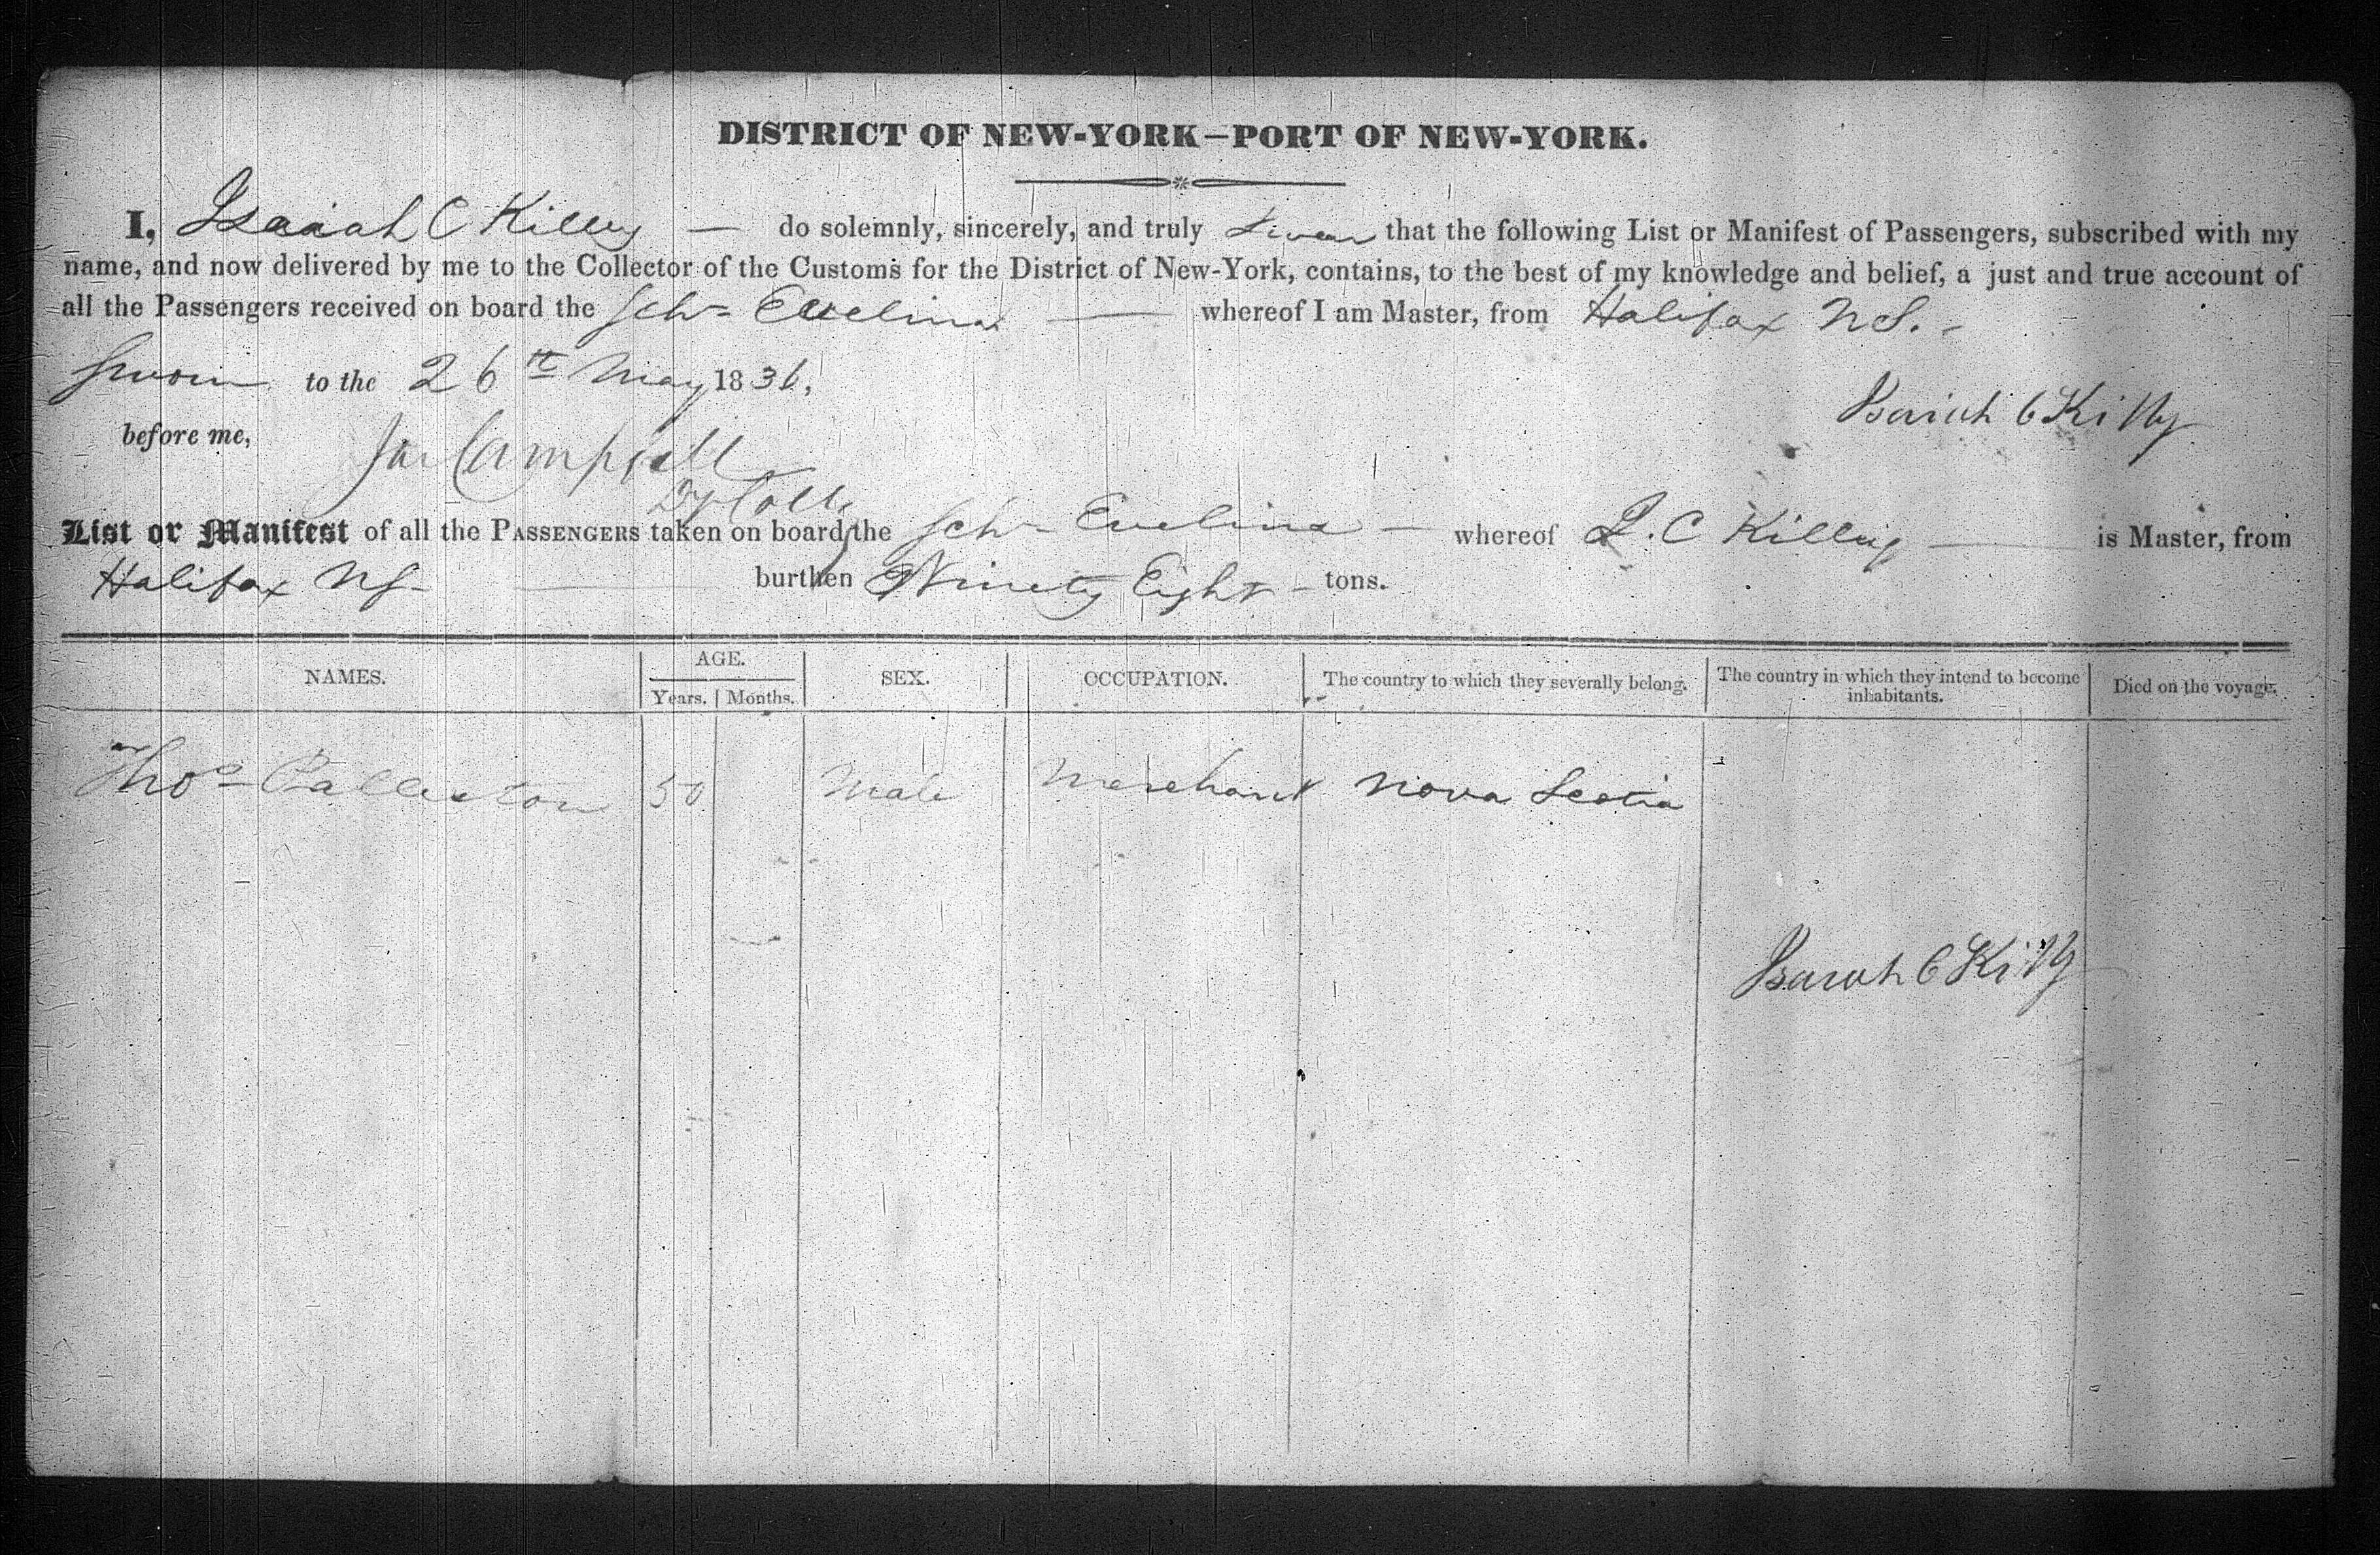 DISTRICT OF NEW-YORK—PORT OF NEW-YORK.
I, Isaiah C Killey — do solemnly, sincerely, and truly swear that the following List or Manifest of Passengers, subscribed with my
name, and now delivered by me to the Collector of the Customs for the District of New-York, contains, to the best of my knowledge and belief, a just and true account of
all the Passengers received on board the Schr Evelina — whereof I am Master, from Halifax NS. -
Sworn to the 26th May 1836,
Isaiah C Killy
before me,
Jas Campbell
Dy Colle
List or Manifest of all the PASSENGERS taken on board the Schr Evelina — whereof I. C Killey — is Master, from
Halifax NS — burthen Ninety Eight - tons.
NAMES. AGE. SEX. OCCUPATION. The country to which they severally belong. The country in which they intend to become inhabitants. Died on the voyage.
Years. Months.
Thos 50 Male Merchant Nova Scotia
Isaiah C Killy